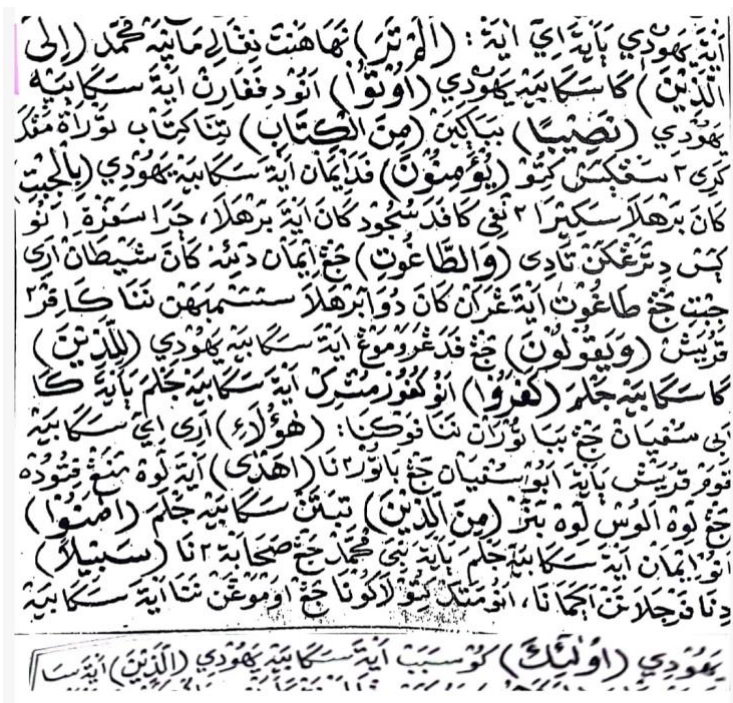 أية يهودي بأية اي اية: (الم تر) نها هنت نغالي مانيه محمد (إلى
الذين) كا سكابيه يهودي (أوتوا) انو دففارن اية سكابيه
يهودي (نصيبا) بباكين (من الكتاب) تنا كتاب توراة مفك
كرى٢ سغكس كتو (يؤمنون) فد ايمان اية سكابيه يهودي (بالجبت)
كان برهلا سكيرا٢ نفى كا فد سجود كان اية برهلا، جرا سغزة انو
كس دترغكن تادى (والطاغوت) جغ ايمان دئيه كان شيطان ارى
جبت جغ طاغوت اية غرن كان دوا برهلا سشتمبهن ننا كافر٢
قريش (ويقولون) جغ فد غروموغ اية سكابيه يهودي (للذين)
كا سكابيه جلم (كفروا) انو كفور مشرك اية سكابيه جلم بأية كا
ابي سفيان جغ ببا تورن ننا فوكنا: (هؤلاء) ارى اي سكابيه
قوم قريش بأية ابو سفيان جغ باتور٢ نا (اهدى) اية لوه منغ فتوده
جغ لوه الوس لوه بنر (من الذين) تبتن سكابيه جلم (امنوا)
انو ايمان اية سكابيه جلم بأية نبي محمد جغ صحابة٢ نا (سبيلا)
دنا فرجلانن اكمانا، انو متك كتو لاكونا جغ اوموغن ننا اية سكابيه
يهودي (اولئك) كو سبب اية سكابيه يهودي (الذين) اية سا